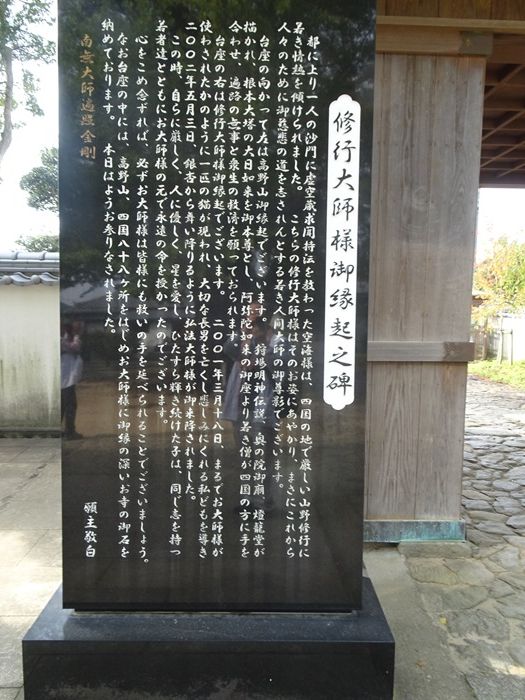 修行大師様御縁起之碑
都に上り一人の沙門に虚空蔵求聞持法を教わった空海様は、四国の地で厳しい山野修行に
若き情熱を傾けられました。 こちらの修行大師様はそのお姿にあやかり、まさにこれから
人々のために御慈悲の道を志されんとする若き人間大師の御尊影でございます。
台座の向かって左は高野山御縁起でございます。 狩場明神伝説、奥の院御廟、燈籠堂が
描かれ、根本大塔の大日如来を御本尊とし、阿弥陀如来の御座より若き僧が四国の方に手を
合わせ、遍路の無事と衆生の救済を願っておられます。
台座の右は修行大師様御縁起でございます。 二〇〇一年三月十八日、まるでお大師様が
使わされたかのように一匹の猫が現われ、大切な長男を亡くし悲しみにくれる私どもを導き
二〇〇二年五月三日、銀杏から舞い降りるように弘法大師様が御来降されました。
この時、自らに厳しく、人に優しく、星を愛し、ひたすら輝き続けた子は、同じ志を持つ
若者達とともにお大師様の元で永遠の命を授かったのでございます。
心をこめ念ずれば、必ずお大師様は皆様にも救いの手を延べられることでございましょう。
なお台座の中には、高野山、四国八十八ヶ所をはじめお大師様に御縁の深いお寺の御石を
納めております。 本日はようお参りなされました。
南無大師遍照金剛
願主敬白